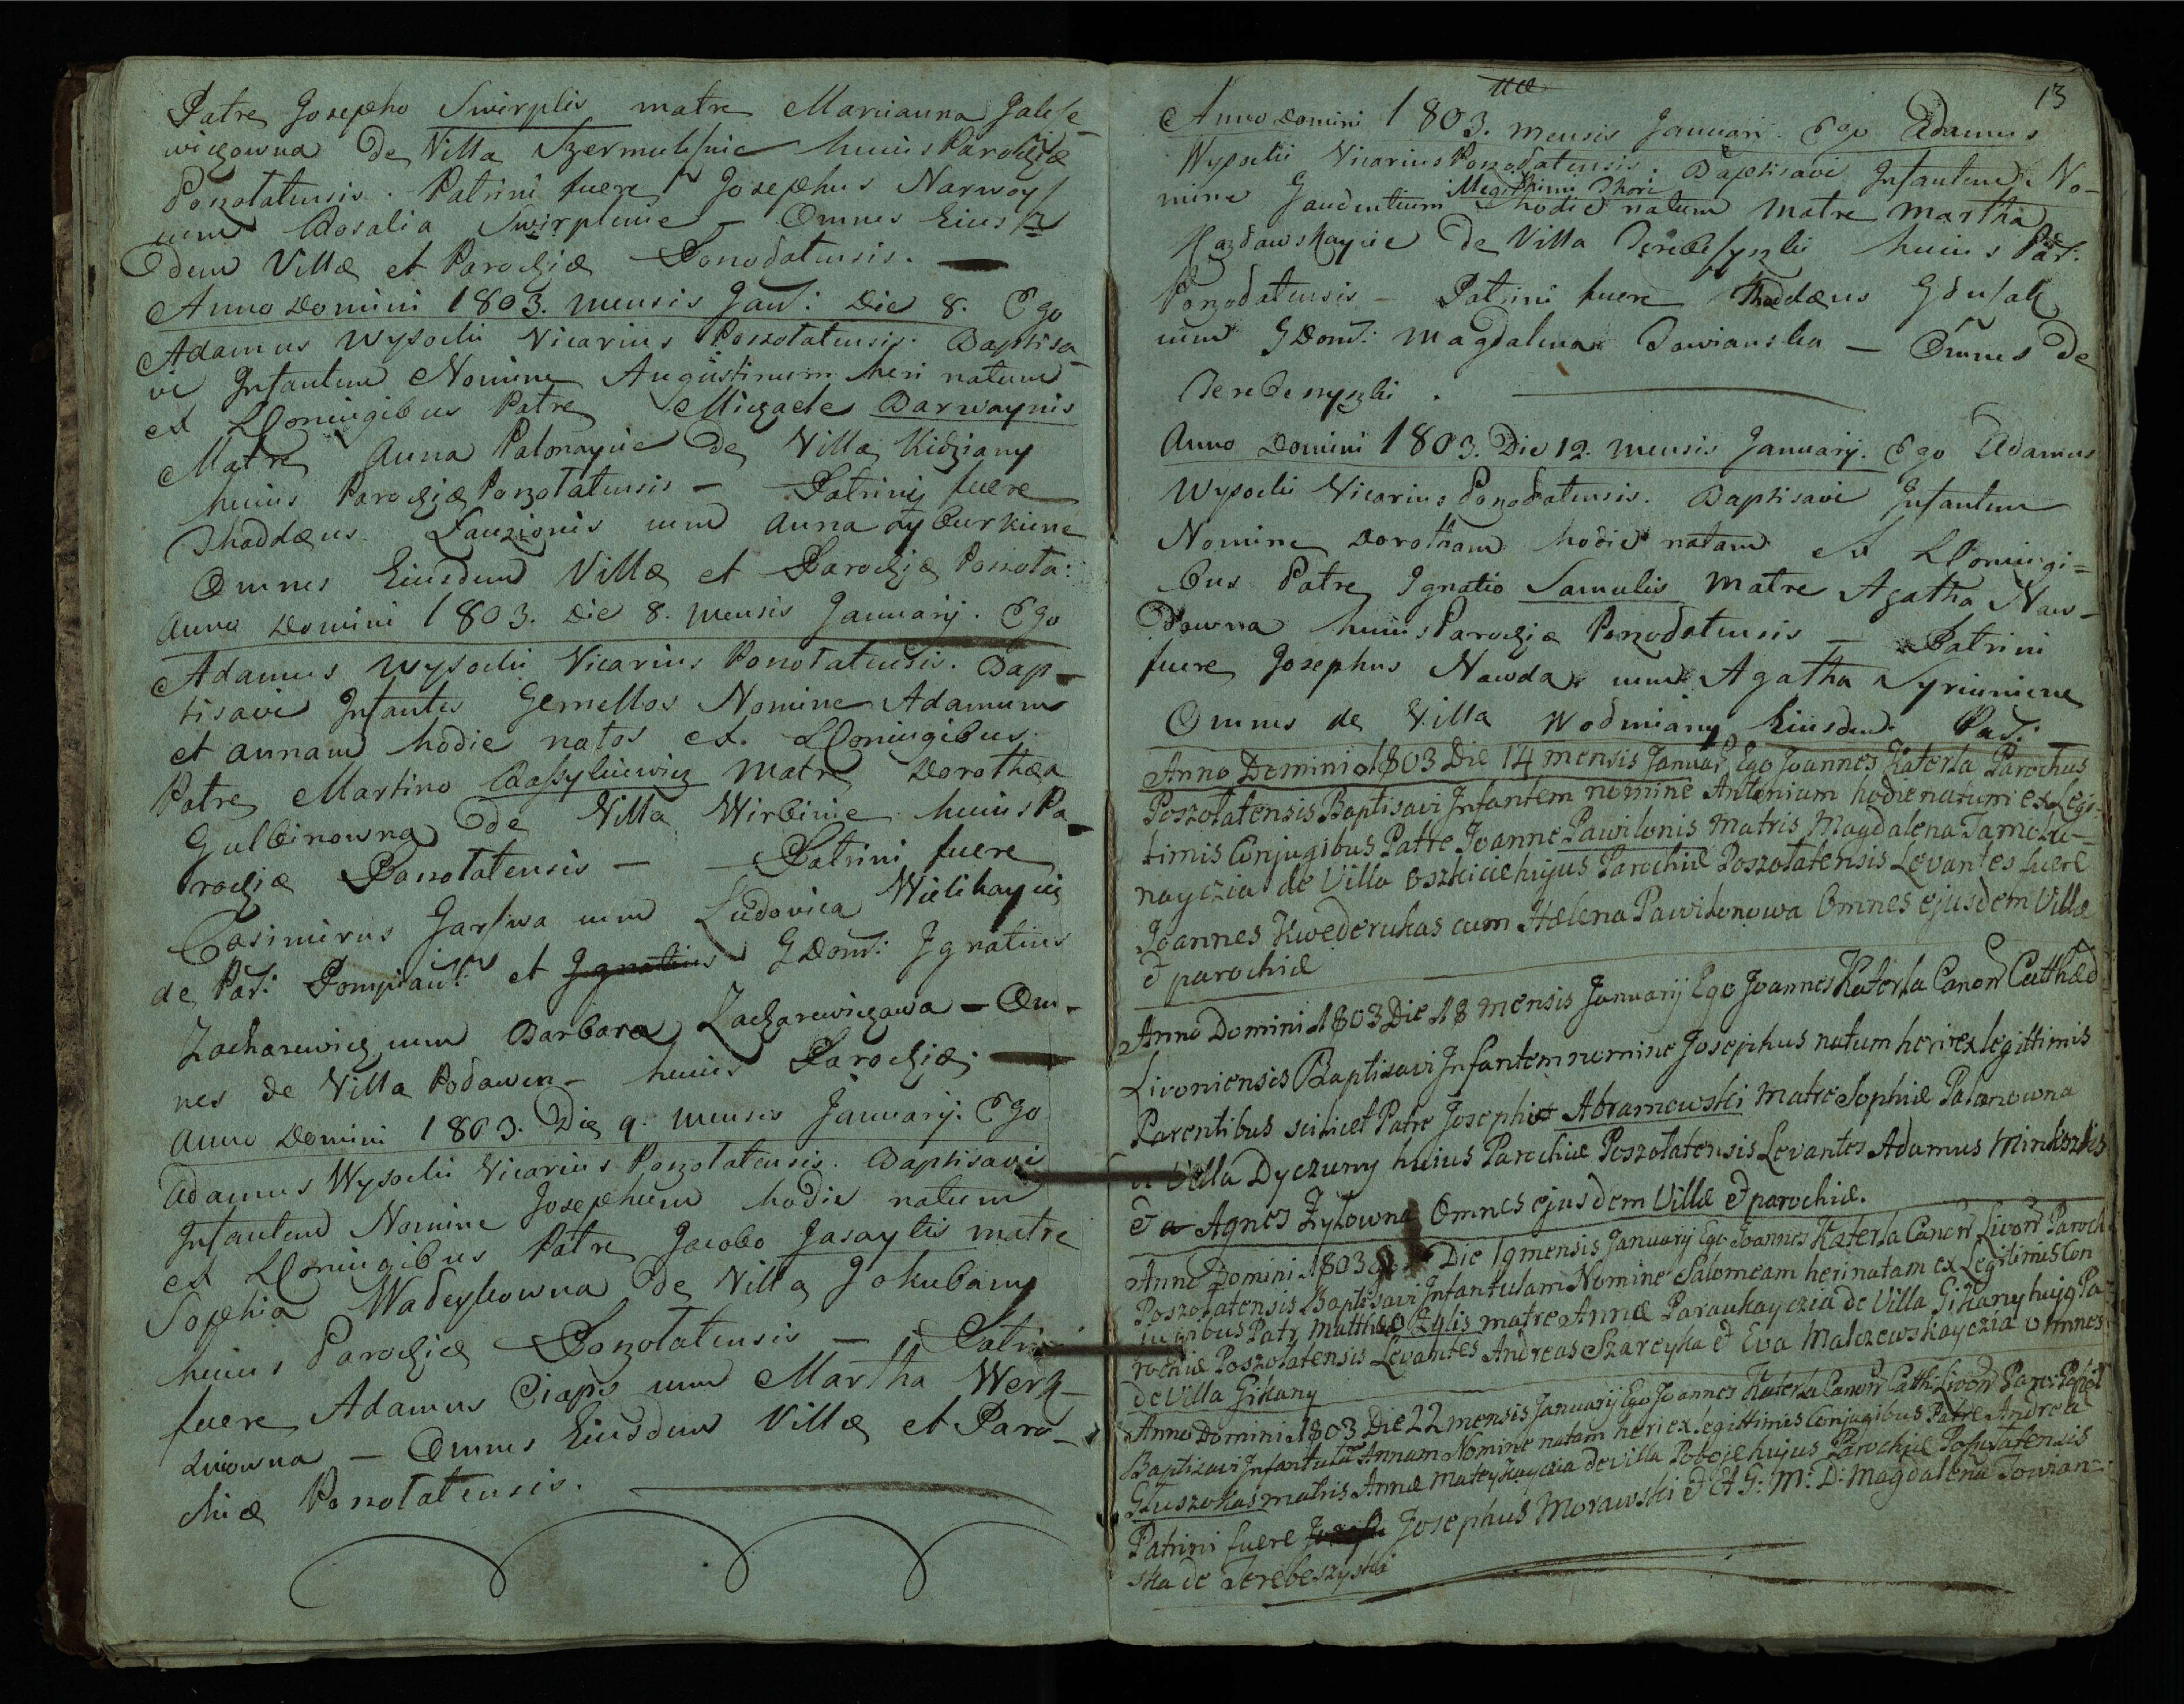 Patre Josepho Swirplis matre Marianna Jakse-
wiczowna de Villa Szermuksnie huius Parochiæ
Poszołatensis. Patrini fuere Josephus Narwoysz
cum Rosalia Swirpliene – Omnes Eius
dem Villæ et Parochiæ Poszołatensis.
Anno Domini 1803. mensis Jan: Die 8. Ego
Adamus Wysocki Vicarius Poszołatensis. Baptisa-
vi Infantem Nomine Augustinum heri natum
ex LConiugibus Patre Michaele Darwaynis
Matre Anna Palonaycie de Villa Kidziany
huius Parochiæ Poszołatensis – Patrini fuere
Thaddæus Lauzionis cum Anna
Omnes Eiusdem Villæ et Parochiæ Poszoła:
Anno Domini 1803. Die 8. mensis Januarij. Ego
Adamus Wysocki Vicarius Poszołatensis. Bap-
tisavi Infantes Gemellos Nomine Adamum
et Annam hodie natos ex LConiugibus.
Patre Martino Bassyliewicz Matre Dorothea
Gulbinowna de Villa Wirbinie huius Pa-
rochiæ Poszołatensis – Patrini fuere
Casimirus Jarszwa cum Ludovica Wielikaycia
de Par: Pompian: et Ignatius GDom: Ignatius
Zacharewicz cum Barbara Zacharewiczowa – Om-
nes de Villa Podawin– huius Parochiæ.
Anno Domini 1803. Die 9. mensis Januarij. Ego
Adamus Wysocki Vicarius Poszołatensis. Baptisavi
Infantem Nomine Josephum hodie natum
ex LConiugibus Patre Jacobo Jasaytis matre
Sophia Wadeykowna de Villa Jokubany
huius Parochiæ Poszołatensis – Patri
fuere Adamus Ciaps cum Martha Werk-
– Omnes Eiusdem Villæ et Paro-
chiæ Poszołatensis.
13
Anno Domini 1803. mensis Januarij. Ego Adamus
Wysocki Vicarius Poszołatensis. Baptisavi Infantem No-
mine Gaudentium Illegitimi Thori hodie natum matre Martha
Kazdawskaycie de Villa Terebeszyszki huius Par:
Poszołatensis – Patrini fuere Thaddæus
cum GDom: Magdalena Towianska – Omnes de
Terebeszyszki.
Anno Domini 1803. Die 12. mensis Januarij. Ego Adamus
Wysocki Vicarius Poszołatensis. Baptisavi Infantem
Nomine Dorotham hodie natam ex LConiugi=
bus Patre Ignatio Samulis Matre Agatha Naw-
downa huius Parochiæ Poszołatensis – Patrini
fuere Josephus Nawda cum Agatha Syriuniene
Omnes de Villa Wodmiany Eiusdem Par:
Anno Domini 1803 Die 14 mensis Januar Ego Joannes Katerla Parochus
Poszołatensis Baptisavi Infantem nomine Antonium hodie natum ex Legi-
timis Conjugibus Patre Joanne Pawilonis Matris Magdalena Tamoszu-
nayczia de Villa Oszkicie hujus Parochiæ Poszołatensis Levantes fuere
Joannes Kwederukas cum Helena Pawilonowa Omnes ejusdem Villæ
& parochiæ
Anno Domini 1803 Die 18 mensis Januarij Ego Joannes Katerla Canon Cathæd
Livoniensis Baptisavi Infantem nomine Josephus natum heri ex legittimis
Parentibus scilicet Patre Josepho Abramowski Matre Sophiæ Palanowna
Villa Dyczuny huius Parochiæ Poszołatensis Levantes Adamus Mindiszkis
& a Agnes Zylowna Omnes ejusdem Villæ & parochiæ.
Anno Domini 1803 Die 19 mensis Januarij Ego Joannes Katerla Canon Livon Paroch
Poszołatensis Baptisavi Infantulam Nomine Salomeam heri natam ex Legitimis Con
iugibus Patr Mattheo Zylis matre Annæ Paraukayczia de Villa Gikany hujq Pa-
rochiæ Poszołatensis Levantes Andreas Szareyka & Eva Malczewskayczia omnes
de Villa Gikany
Anno Domini 1803 Die 22 mensis Januarij Ego Joannes Katerla Canon Cathi Livon Paroc
Baptisavi Infantulã Annam Nomine natam heri ex legittimis Conjugibus Patre Andrea
Głuszokas matris Annæ Mateykayczia de Villa Poboje hujus Parochiæ Poszołatensis
Patrini fuere Josephus Morawski & A G: M: D: Magdalena Towian-
ska de Terebeszyszki